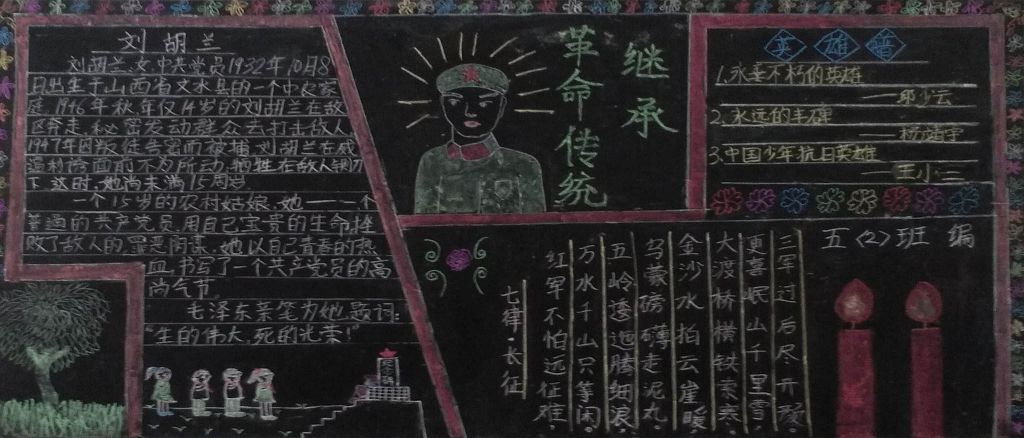 刘胡兰
刘胡兰,女,中共党员,1932年10月8
日出生于山西省文水县的一个中农家
庭,1946年秋年仅14岁的刘胡兰在敌
区奔走,秘密发动群众去打击敌人。
1947年因叛徒告密而被捕,刘胡兰在威
逼利诱面前不为所动,牺牲在敌人铡刀
下,这时,她尚未满15周岁
一个15岁的农村姑娘,她——一个
普通的共产党员,用自己宝贵的生命挫
败了敌人的罪恶阴谋,她以自己青春的热
血,书写了一个共产党员的高
尚气节。
毛泽东亲笔为她题词:
“生的伟大,死的光荣!”
继承
革命传统
英雄谱
1.永垂不朽的英雄
——邱少云
2.永远的丰碑
——杨靖宇
3.中国少年抗日英雄
——王小二
五〈2〉班 编
七律·长征
红军不怕远征难,
万水千山只等闲。
五岭逶迤腾细浪,
乌蒙磅礴走泥丸。
金沙水拍云崖暖,
大渡桥横铁索寒。
更喜岷山千里雪,
三军过后尽开颜。